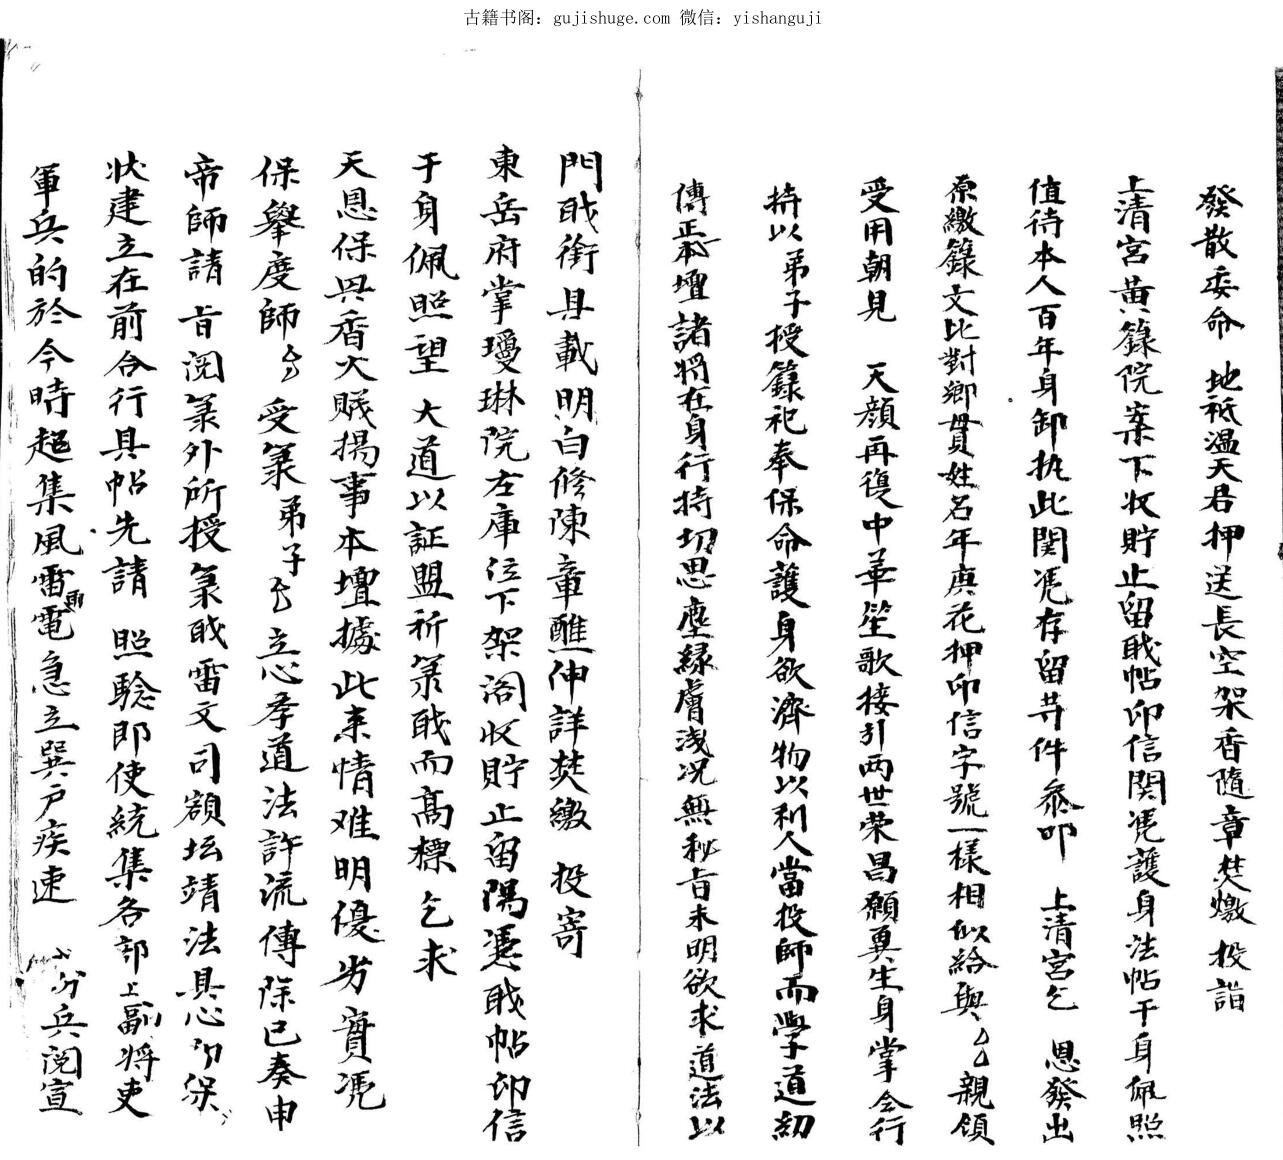 古籍书阁：gujishuge.com 微信：yishanguji
發散委命 地祇温天君押送長空架香隨章焚燉 投詣
上清宮黃籙院案下收貯止留戝帖印信関凴護身法帖干身佩照
值待本人百年身卸执此関凴存留廿件叅叩 上清宮乞 恩發出
原繳錄文比對鄉貫姓名年庚花押印信字號一樣相似給與厶厶親領
受用朝見 天顔再復中華笙歌接引两世荣昌願奠生身掌合行
持以弟子授籙祀奉保命護身欲濟物以利人當投師而學道切
傳正本壇諸將在身行持切思塵緑膚浅况無秘旨未明欲求道法以
門戝銜具載明白修陳章醮伸詳焚繳 投寄
東岳府掌瓊琳院左庫位下架阁收貯止留隅凴戝帖印信
于身佩照望 大道以証盟祈箓戝而髙標 乞求
天恩保畀香火贱揚事本壇據此来情难明優劣實凴
保舉度師厶受箓弟子厶立心孝道法許流傳除已奏申
帝師請旨阅箓外所授箓戝雷文司額坛靖法具心印保
状建立在前合行具帖先請 照騐即使統集各部上副将吏
軍兵的於今時起集風雷雨電急立巽户疾速 分兵阅宣